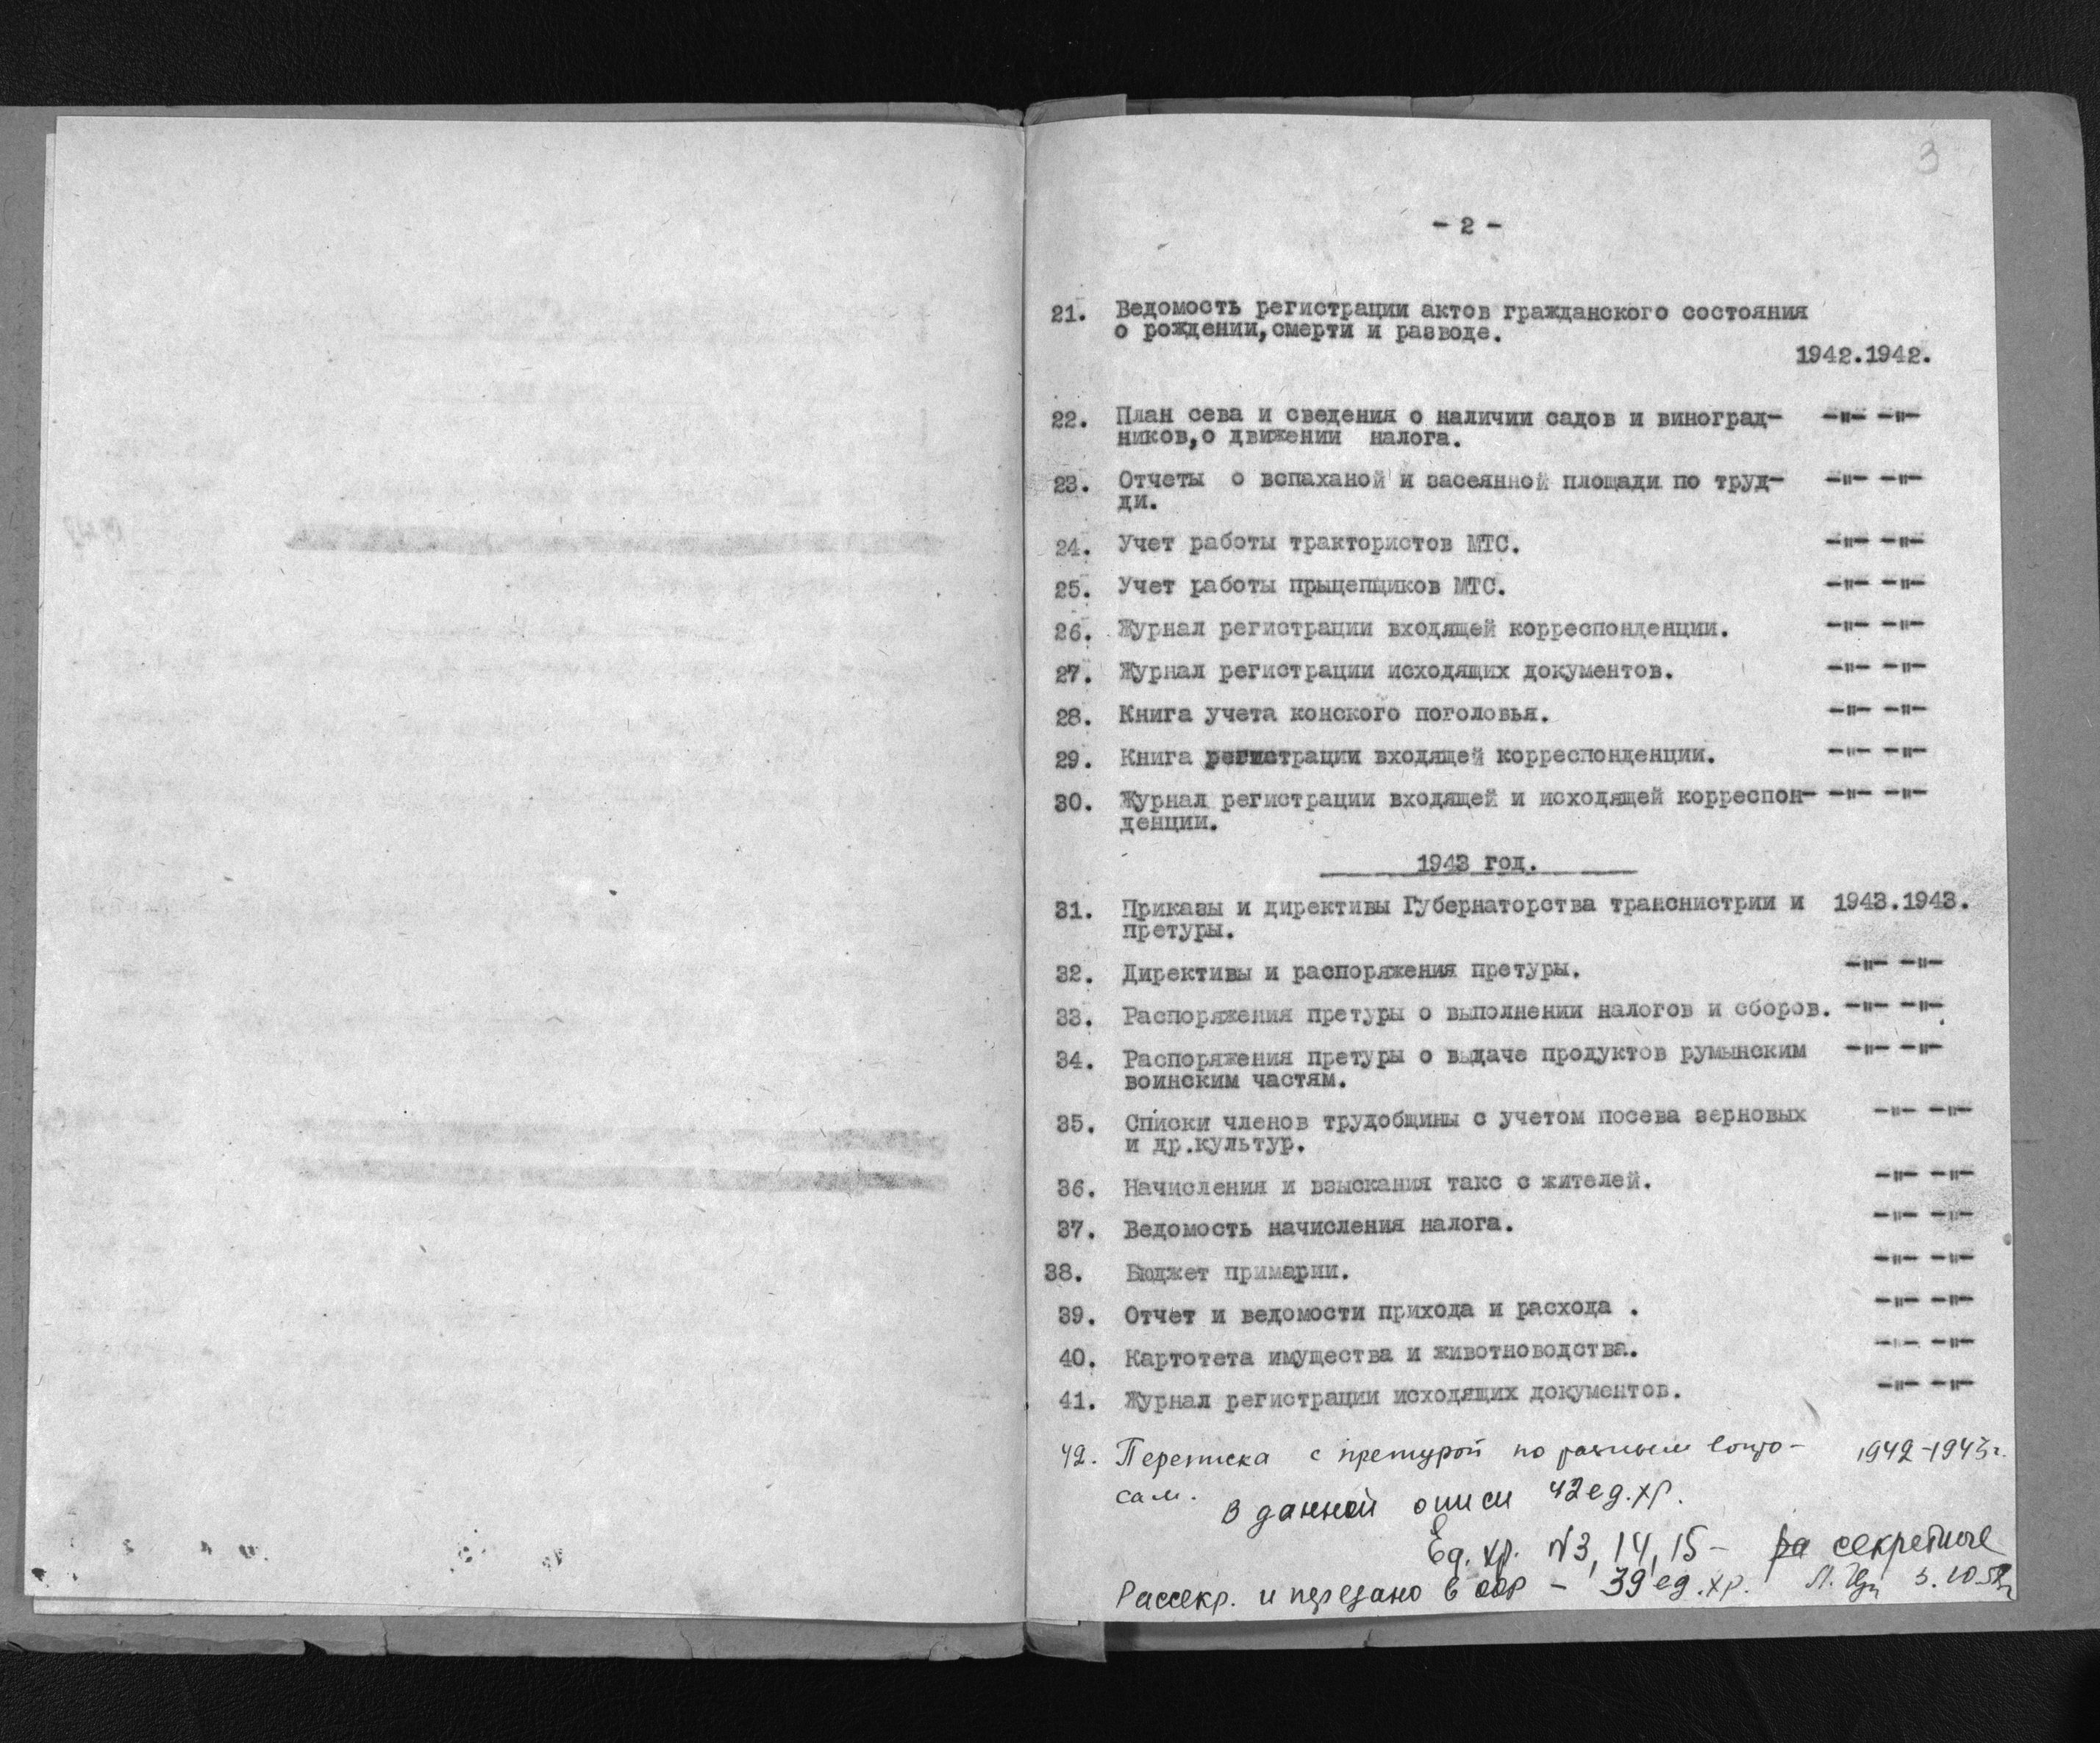 3
- 2 -
21. Ведомость регистрации актов гражданского состояния
о рождении,смерти и разводе.
1942.1942.
22. План сева и сведения о наличии садов и виноград- -"- -"-
ников,о движении налога.
23. Отчеты о вспаханой и засеянной площади по труд- -"- -"-
ди.
24. Учет работы трактористов МТС. -"- -"-
25. Учет работы прыцепщиков МТС. -"- -"-
26. Журнал регистрации входящей корреспонденции. -"- -"-
27. Журнал регистрации исходящих документов. -"- -"-
28. Книга учета конского поголовья. -"- -"-
29. Книга регистрации входящей корреспонденции. -"- -"-
30. Журнал регистрации входящей и исходящей корреспон- -"- -"-
денции.
1943 год.
31. Приказы и директивы Губернаторства транснистрии и 1943.1943.
претуры.
32. Директивы и распоряжения претуры. -"- -"-
33. Распоряжения претуры о выполнении налогов и сборов. -"- -"-
34. Распоряжения претуры о выдаче продуктов румынским -"- -"-
воинским частям.
35. Списки членов трудобщины с учетом посева зерновых -"- -"-
и др.культур.
36. Начисления и взыскания такс с жителей. -"- -"-
37. Ведомость начисления налога. -"- -"-
38. Бюджет примарии. -"- -"-
39. Отчет и ведомости прихода и расхода . -"- -"-
40. Картотета имущества и животноводства. -"- -"-
41. Журнал регистрации исходящих документов. -"- -"-
42. Переписка с претурой по разным вопро- 1942-1943г.
сам.
В данной описи 42 ед.хр.
Ед. хр. N3, 14, 15 - секретные
Рассекр. и передано в ООР - 39 ед.хр.